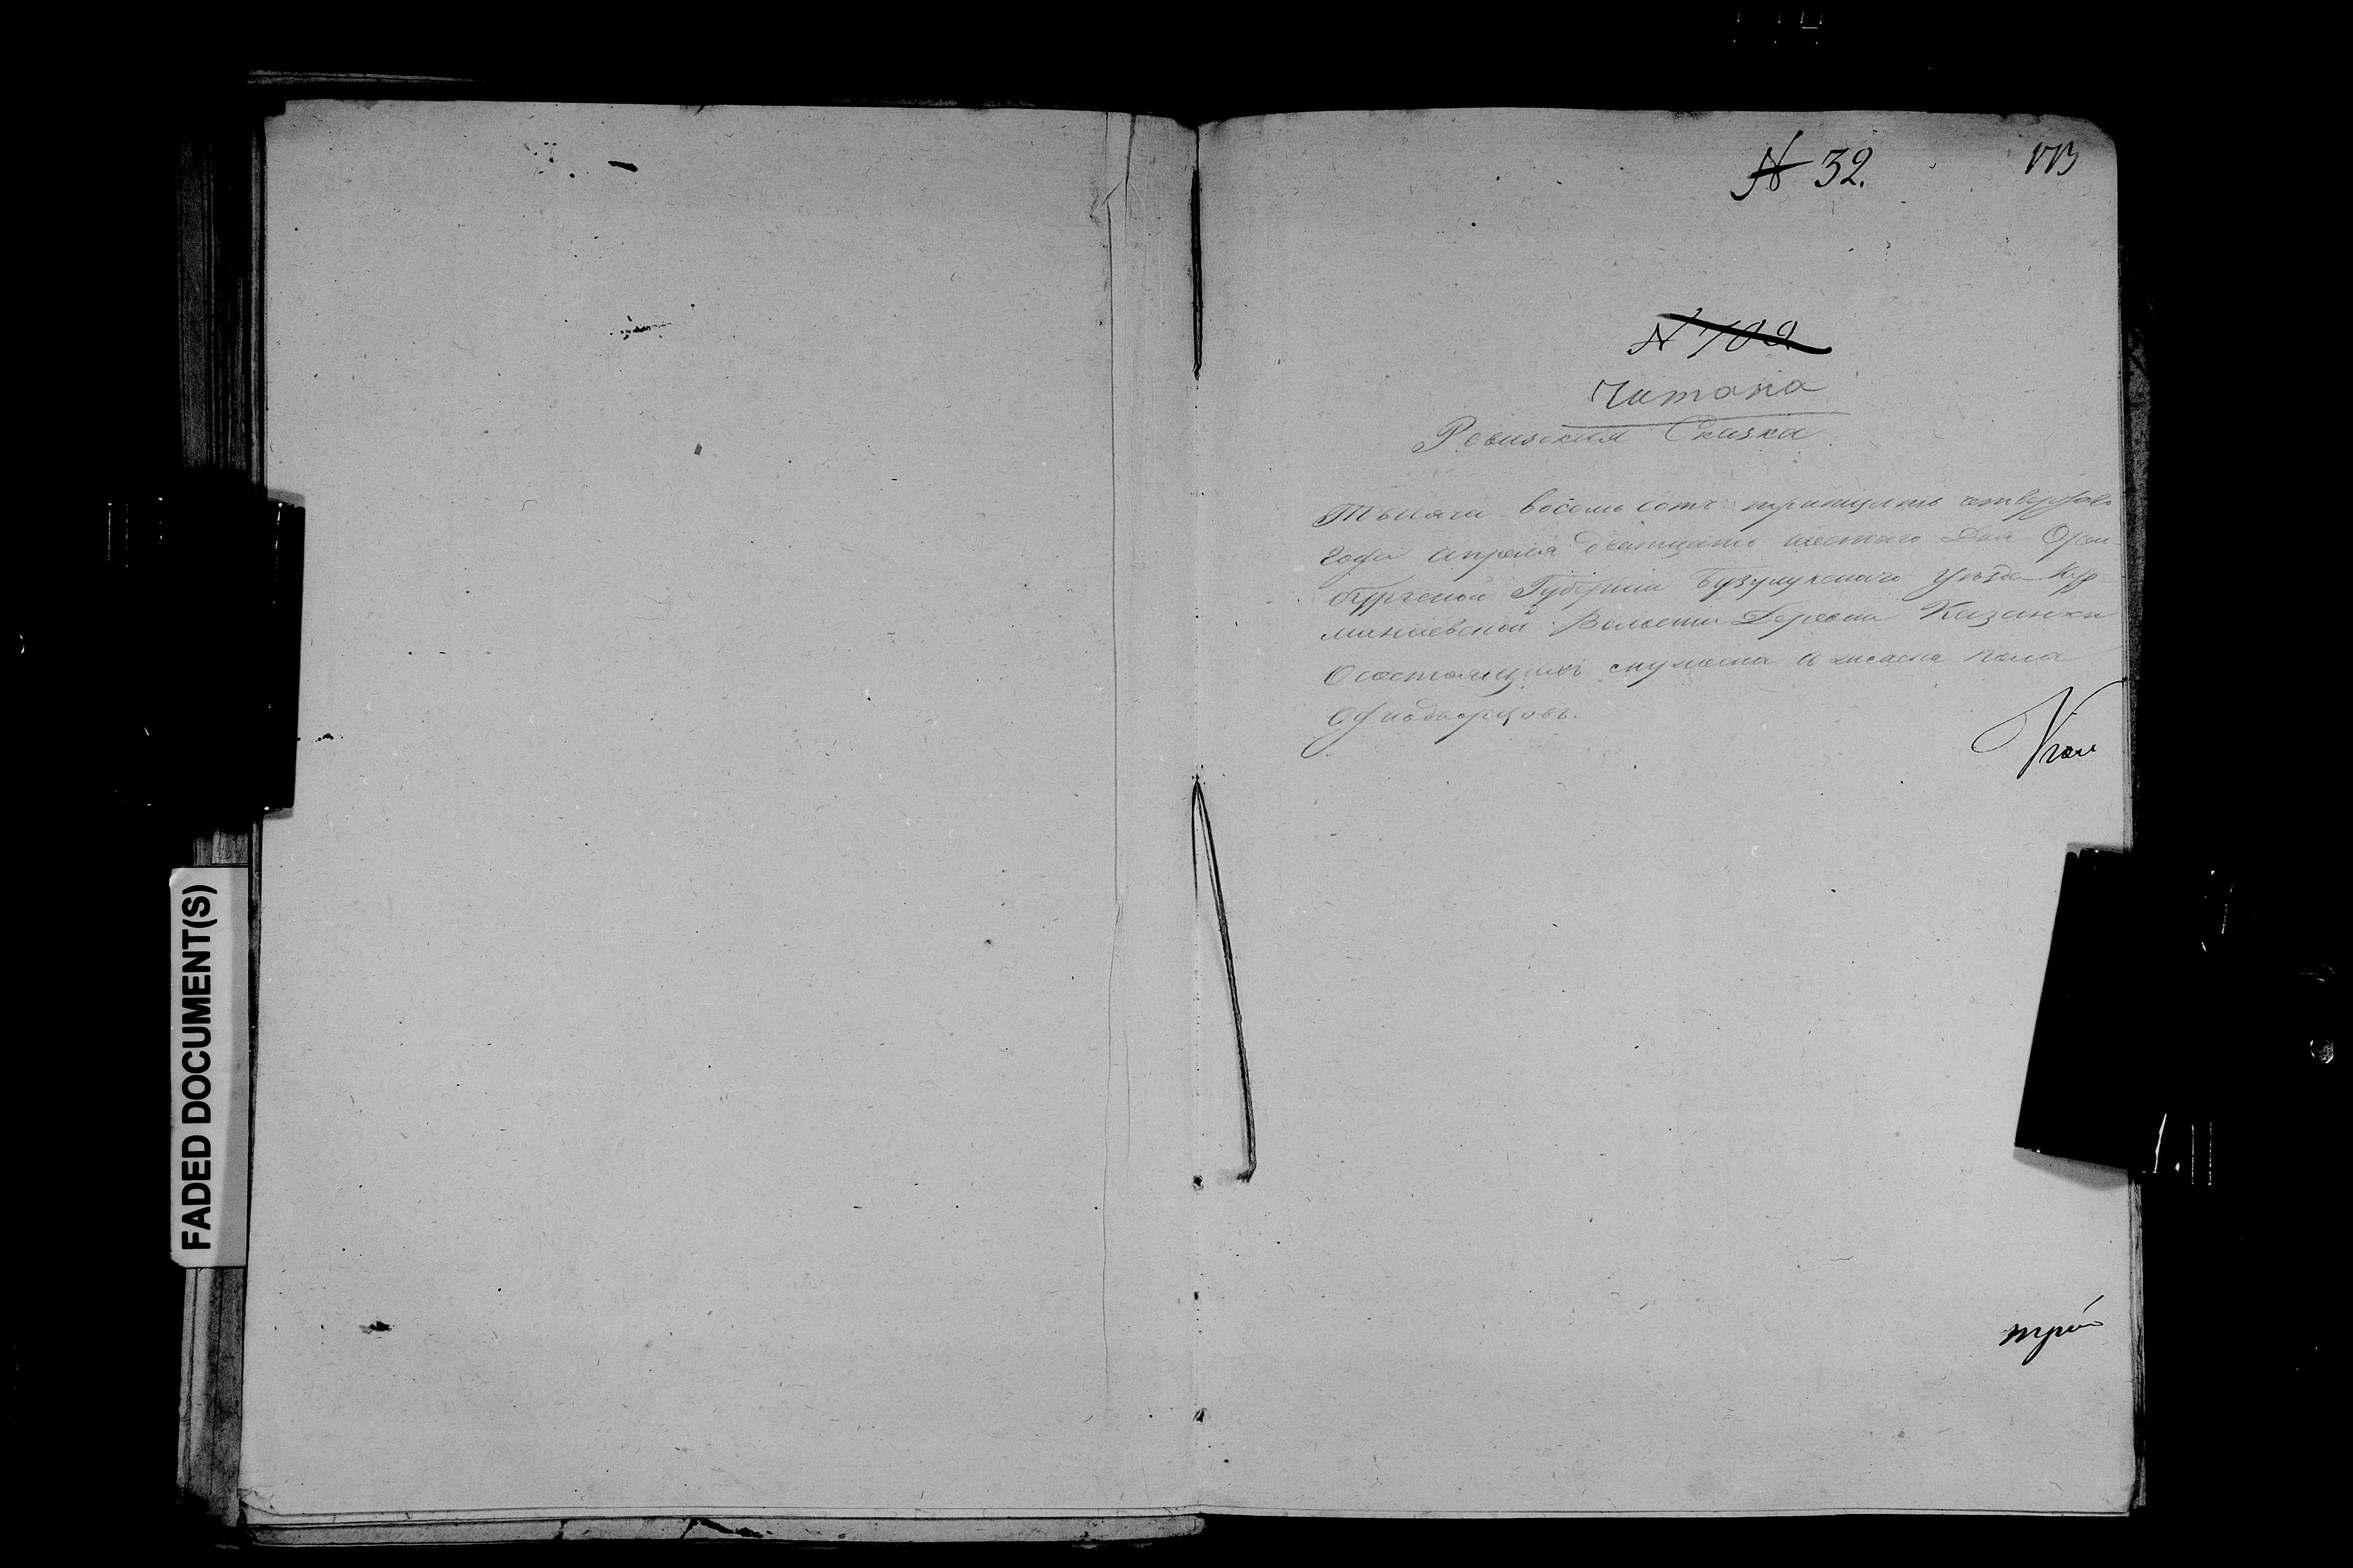 FADED DOCUMENT(S)
№ 32.
№ 102
Читана
Ревизская Сказка
Тысяча восемь сотъ тритцать четвертаго
Года Апреля дватцать шестаго Дня Орен
бургской Губернии Бузулукскаго Уезда Кур
манаевской Волости Деревни Казанки
О состоящихъ мужеска и женска пола
Однодворцовъ.